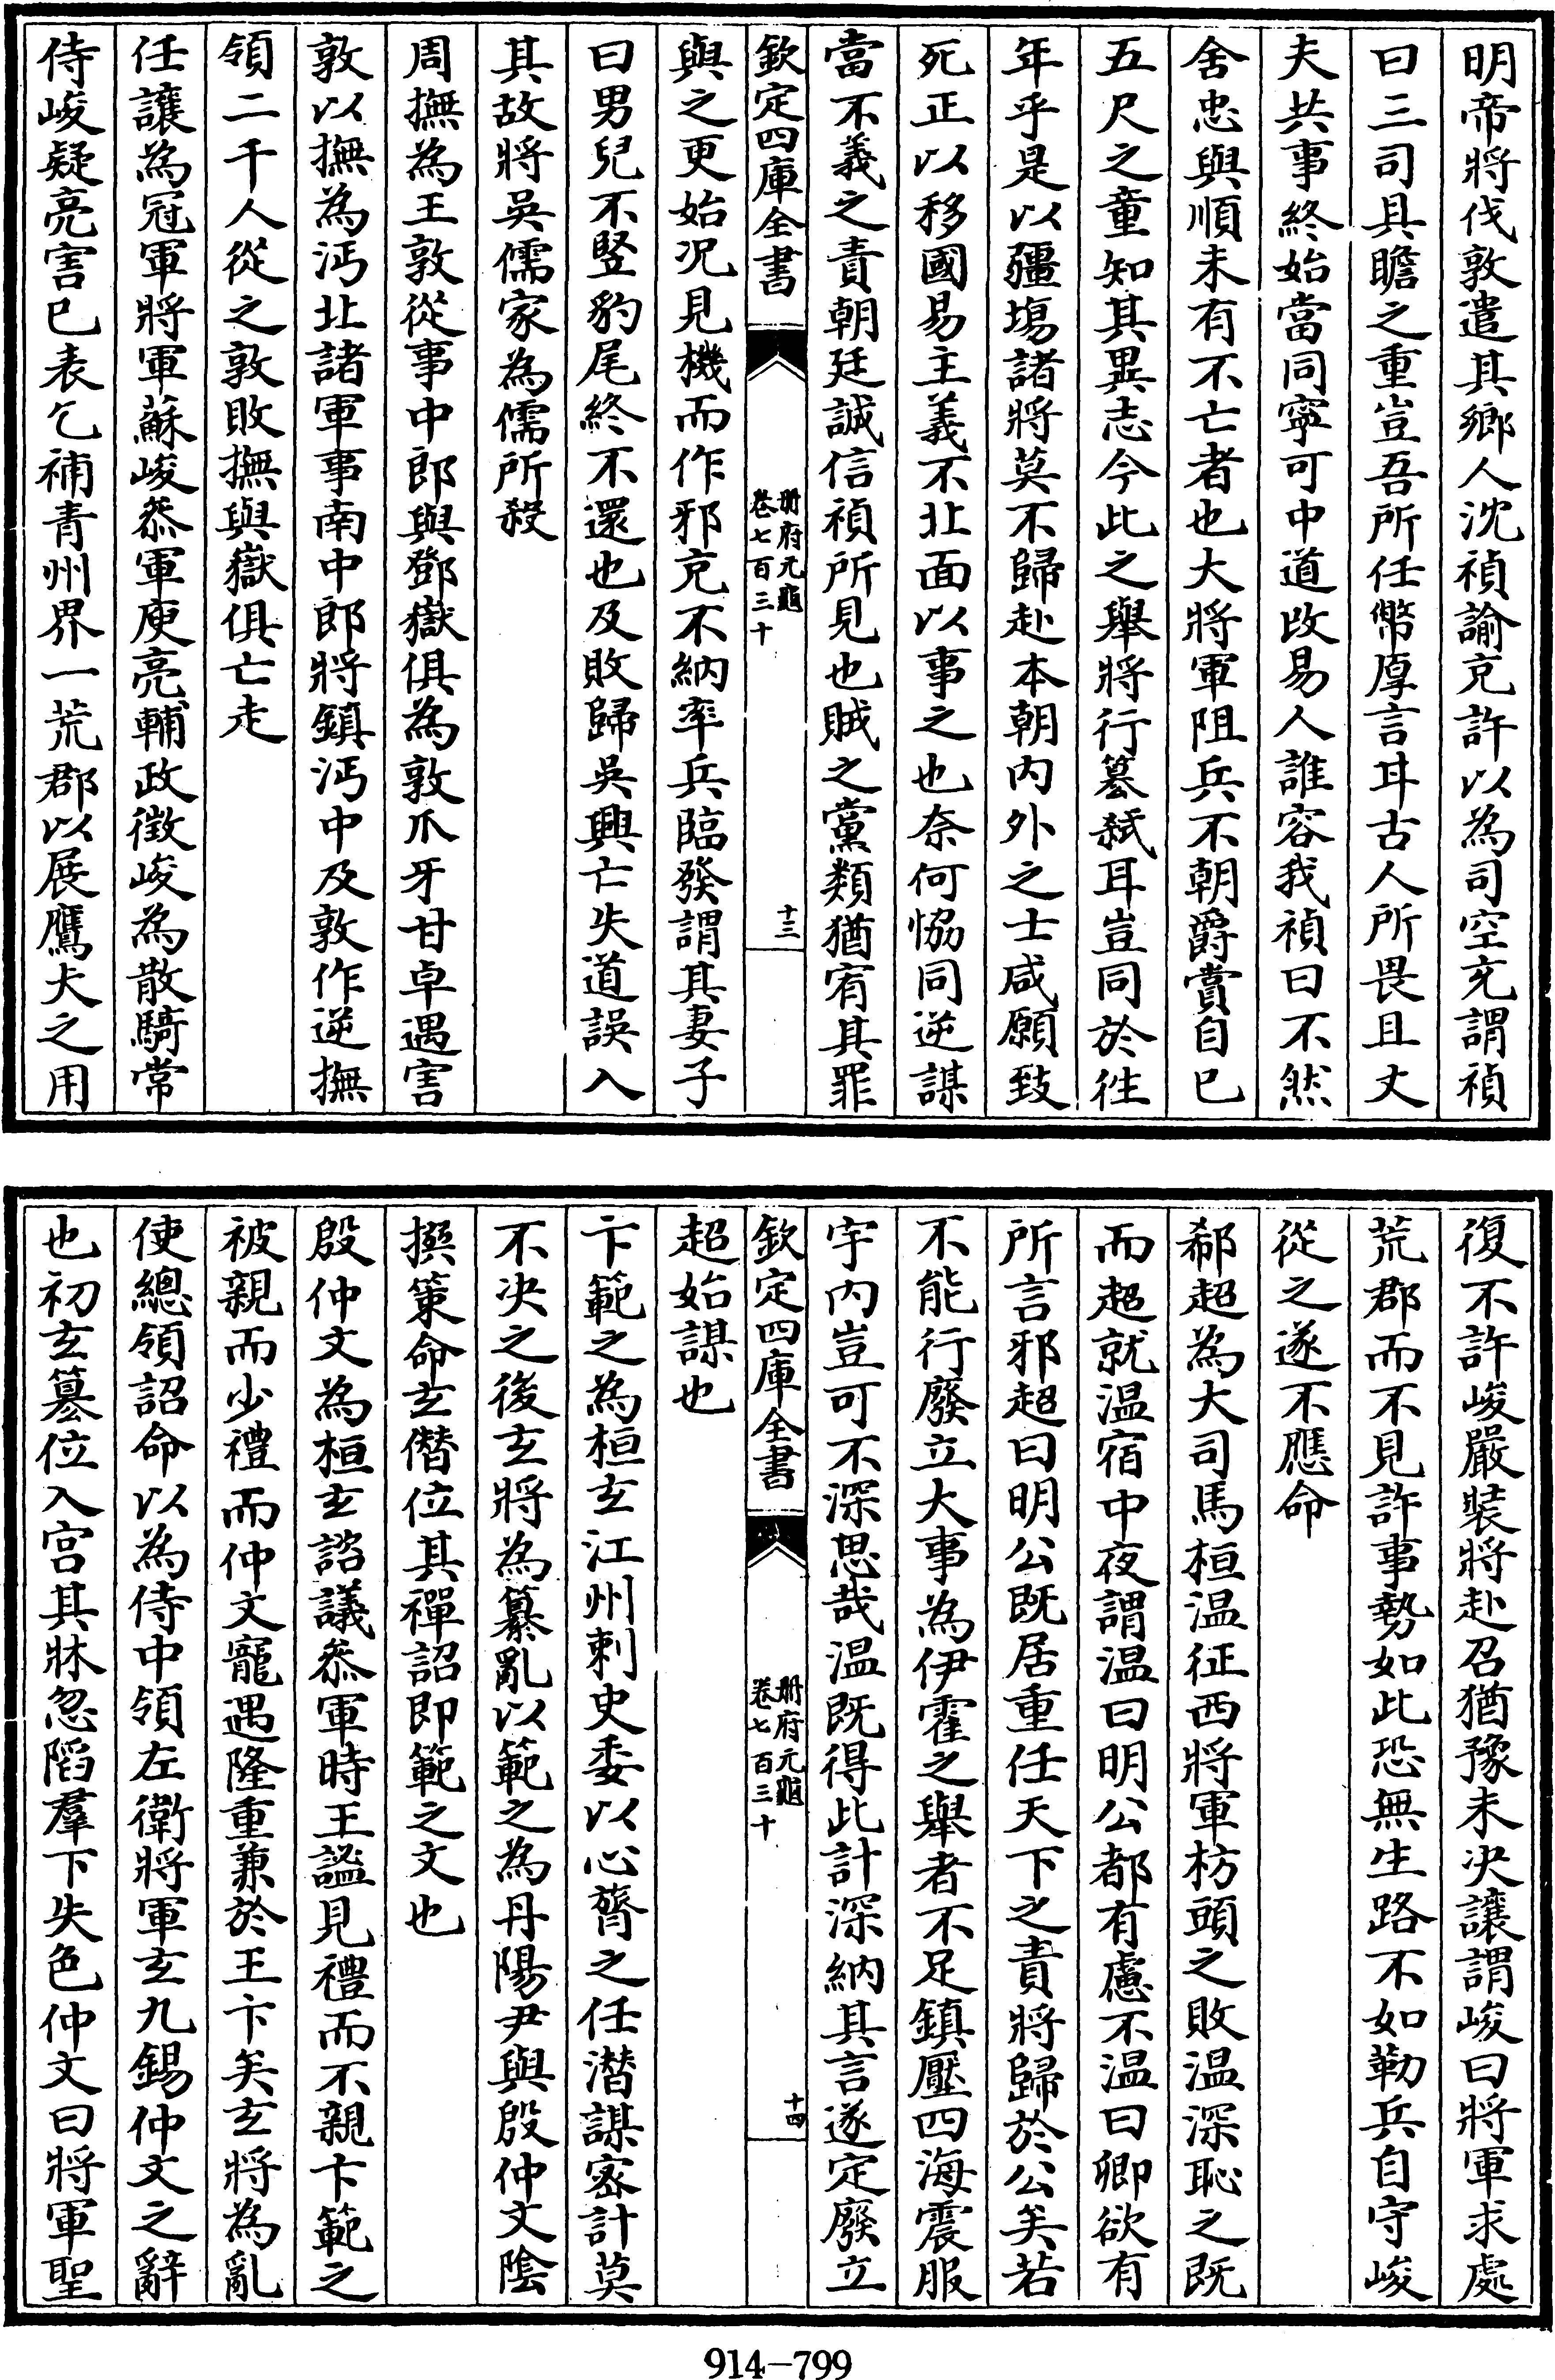 明帝將伐敦遣其鄉人沈禎諭充許以為司空充謂禎
曰三司具瞻之重豈吾所任幣厚言甘古人所畏且丈
夫共事終始當同寧可中道改易人誰容我禎曰不然
舍忠與順未有不亡者也大將軍阻兵不朝爵賞自己
五尺之童知其異志今此之舉將行篡弑耳豈同於徃
年乎是以疆場諸將莫不歸赴本朝内外之士咸願致
死正以移國易主義不北面以事之也奈何恊同逆謀
當不義之責朝廷誠信禎所見也賊之黨類猶宥其罪
欽定四庫全書
册府元龜
卷七百三十
十三
與之更始况見機而作邪充不納率兵臨發謂其妻子
曰男兒不竪豹尾終不還也及敗歸吳興亡失道誤入
其故將吳儒家為儒所殺
周撫為王敦從事中郎與鄧嶽俱為敦爪牙甘卓遇害
敦以撫為沔北諸軍事南中郎將鎮沔中及敦作逆撫
領二千人從之敦敗撫與嶽俱亡走
任讓為冠軍將軍蘇峻叅軍庾亮輔政徵峻為散騎常
侍峻疑亮害已表乞補青州界一荒郡以展鷹犬之用
復不許峻嚴裝將赴召猶豫未决讓謂峻曰將軍求處
荒郡而不見許事勢如此恐無生路不如勒兵自守峻
從之遂不應命
郗超為大司馬桓温征西將軍枋頭之敗温深恥之既
而超就温宿中夜謂温曰明公都有慮不温曰卿欲有
所言邪超曰明公既居重任天下之責將歸於公矣若
不能行廢立大事為伊霍之舉者不足鎮壓四海震服
宇内豈可不深思哉温既得此計深納其言遂定廢立
欽定四庫全書
册府元龜
卷七百三十
十四
超始謀也
卞範之為桓玄江州刺史委以心膂之任潛謀宻計莫
不决之後玄將為纂亂以範之為丹陽尹與殷仲文隂
撰策命玄僭位其禪詔即範之文也
殷仲文為桓玄諮議叅軍時王謐見禮而不親卞範之
被親而少禮而仲文寵遇隆重兼於王卞矣玄將為亂
使總領詔命以為侍中領左衛將軍玄九錫仲文之辭
也初玄篡位入宫其牀忽陷羣下失色仲文曰將軍聖
914—799